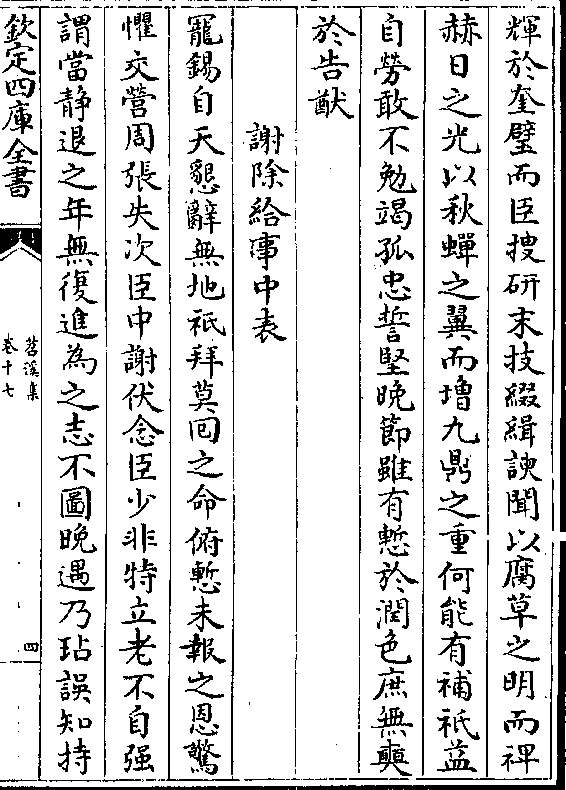 輝於奎璧而臣搜研末技綴緝謏聞以腐草之明而裨
赫日之光以秋蟬之翼而增九鼎之重何能有補祇益
自勞敢不勉竭孤忠誓堅晚節雖有慙於潤色庶無奭
於告猷
謝除給事中表
寵錫自天懇辭無地祇拜莫囘之命俯慙未報之恩驚
懼交營周張失次臣中謝伏念臣少非特立老不自强
謂當静退之年無復進為之志不圖晚遇乃玷誤知持
欽定四庫全書
苕溪集
卷十七
四